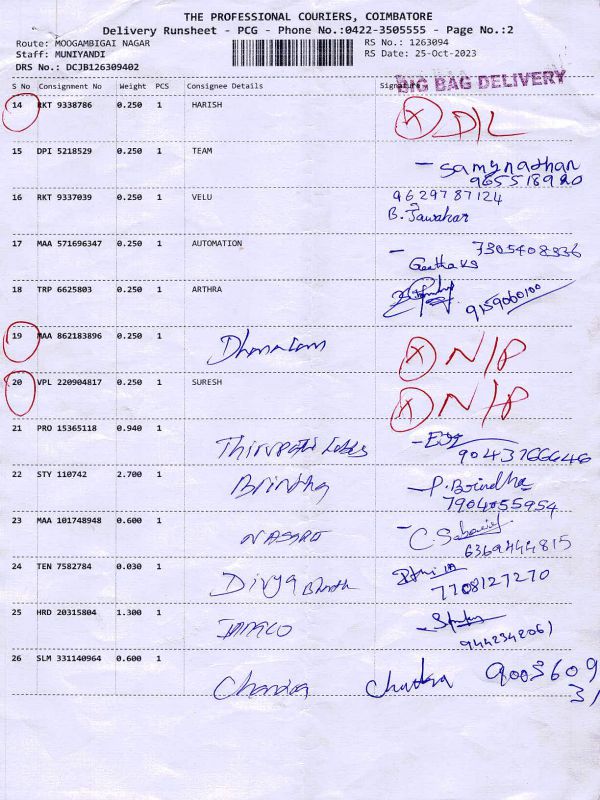 THE PROFESSIONAL COURIERS, COIMBATORE
Delivery Runsheet - PCG - Phone No.:0422-3505555 - Page No.:2
Route: MOOGAMBIGAI NAGAR RS No.: 1263094
Staff: MUNIYANDI RS Date: 25-Oct-2023
DRS No.: DCJB126309402
BIG BAG DELIVERY
S No Consignment No Weight PCS Consignee Details Signature
14 RKT 9338786 0.250 1 HARISH D/L
15 DPI 5218529 0.250 1 TEAM - Samynathan
965518920
16 RKT 9337039 0.250 1 VELU 9629787124
B. Jawahar
17 MAA 571696347 0.250 1 AUTOMATION - 7305408336
Geetha KS
18 TRP 6625803 0.250 1 ARTHRA
9159060100
19 MAA 862183896 0.250 1 N/P
20 VPL 220904817 0.250 1 SURESH N/P
21 PRO 15365118 0.940 1 Thirupathi
9043766646
22 STY 110742 2.700 1 Brindha - P. Brindha
7904055954
23 MAA 101748948 0.600 1 -
6369444815
24 TEN 7582784 0.030 1 Divya
7708127270
25 HRD 20315804 1.300 1
9442342061
26 SLM 331140964 0.600 1 9003609
31